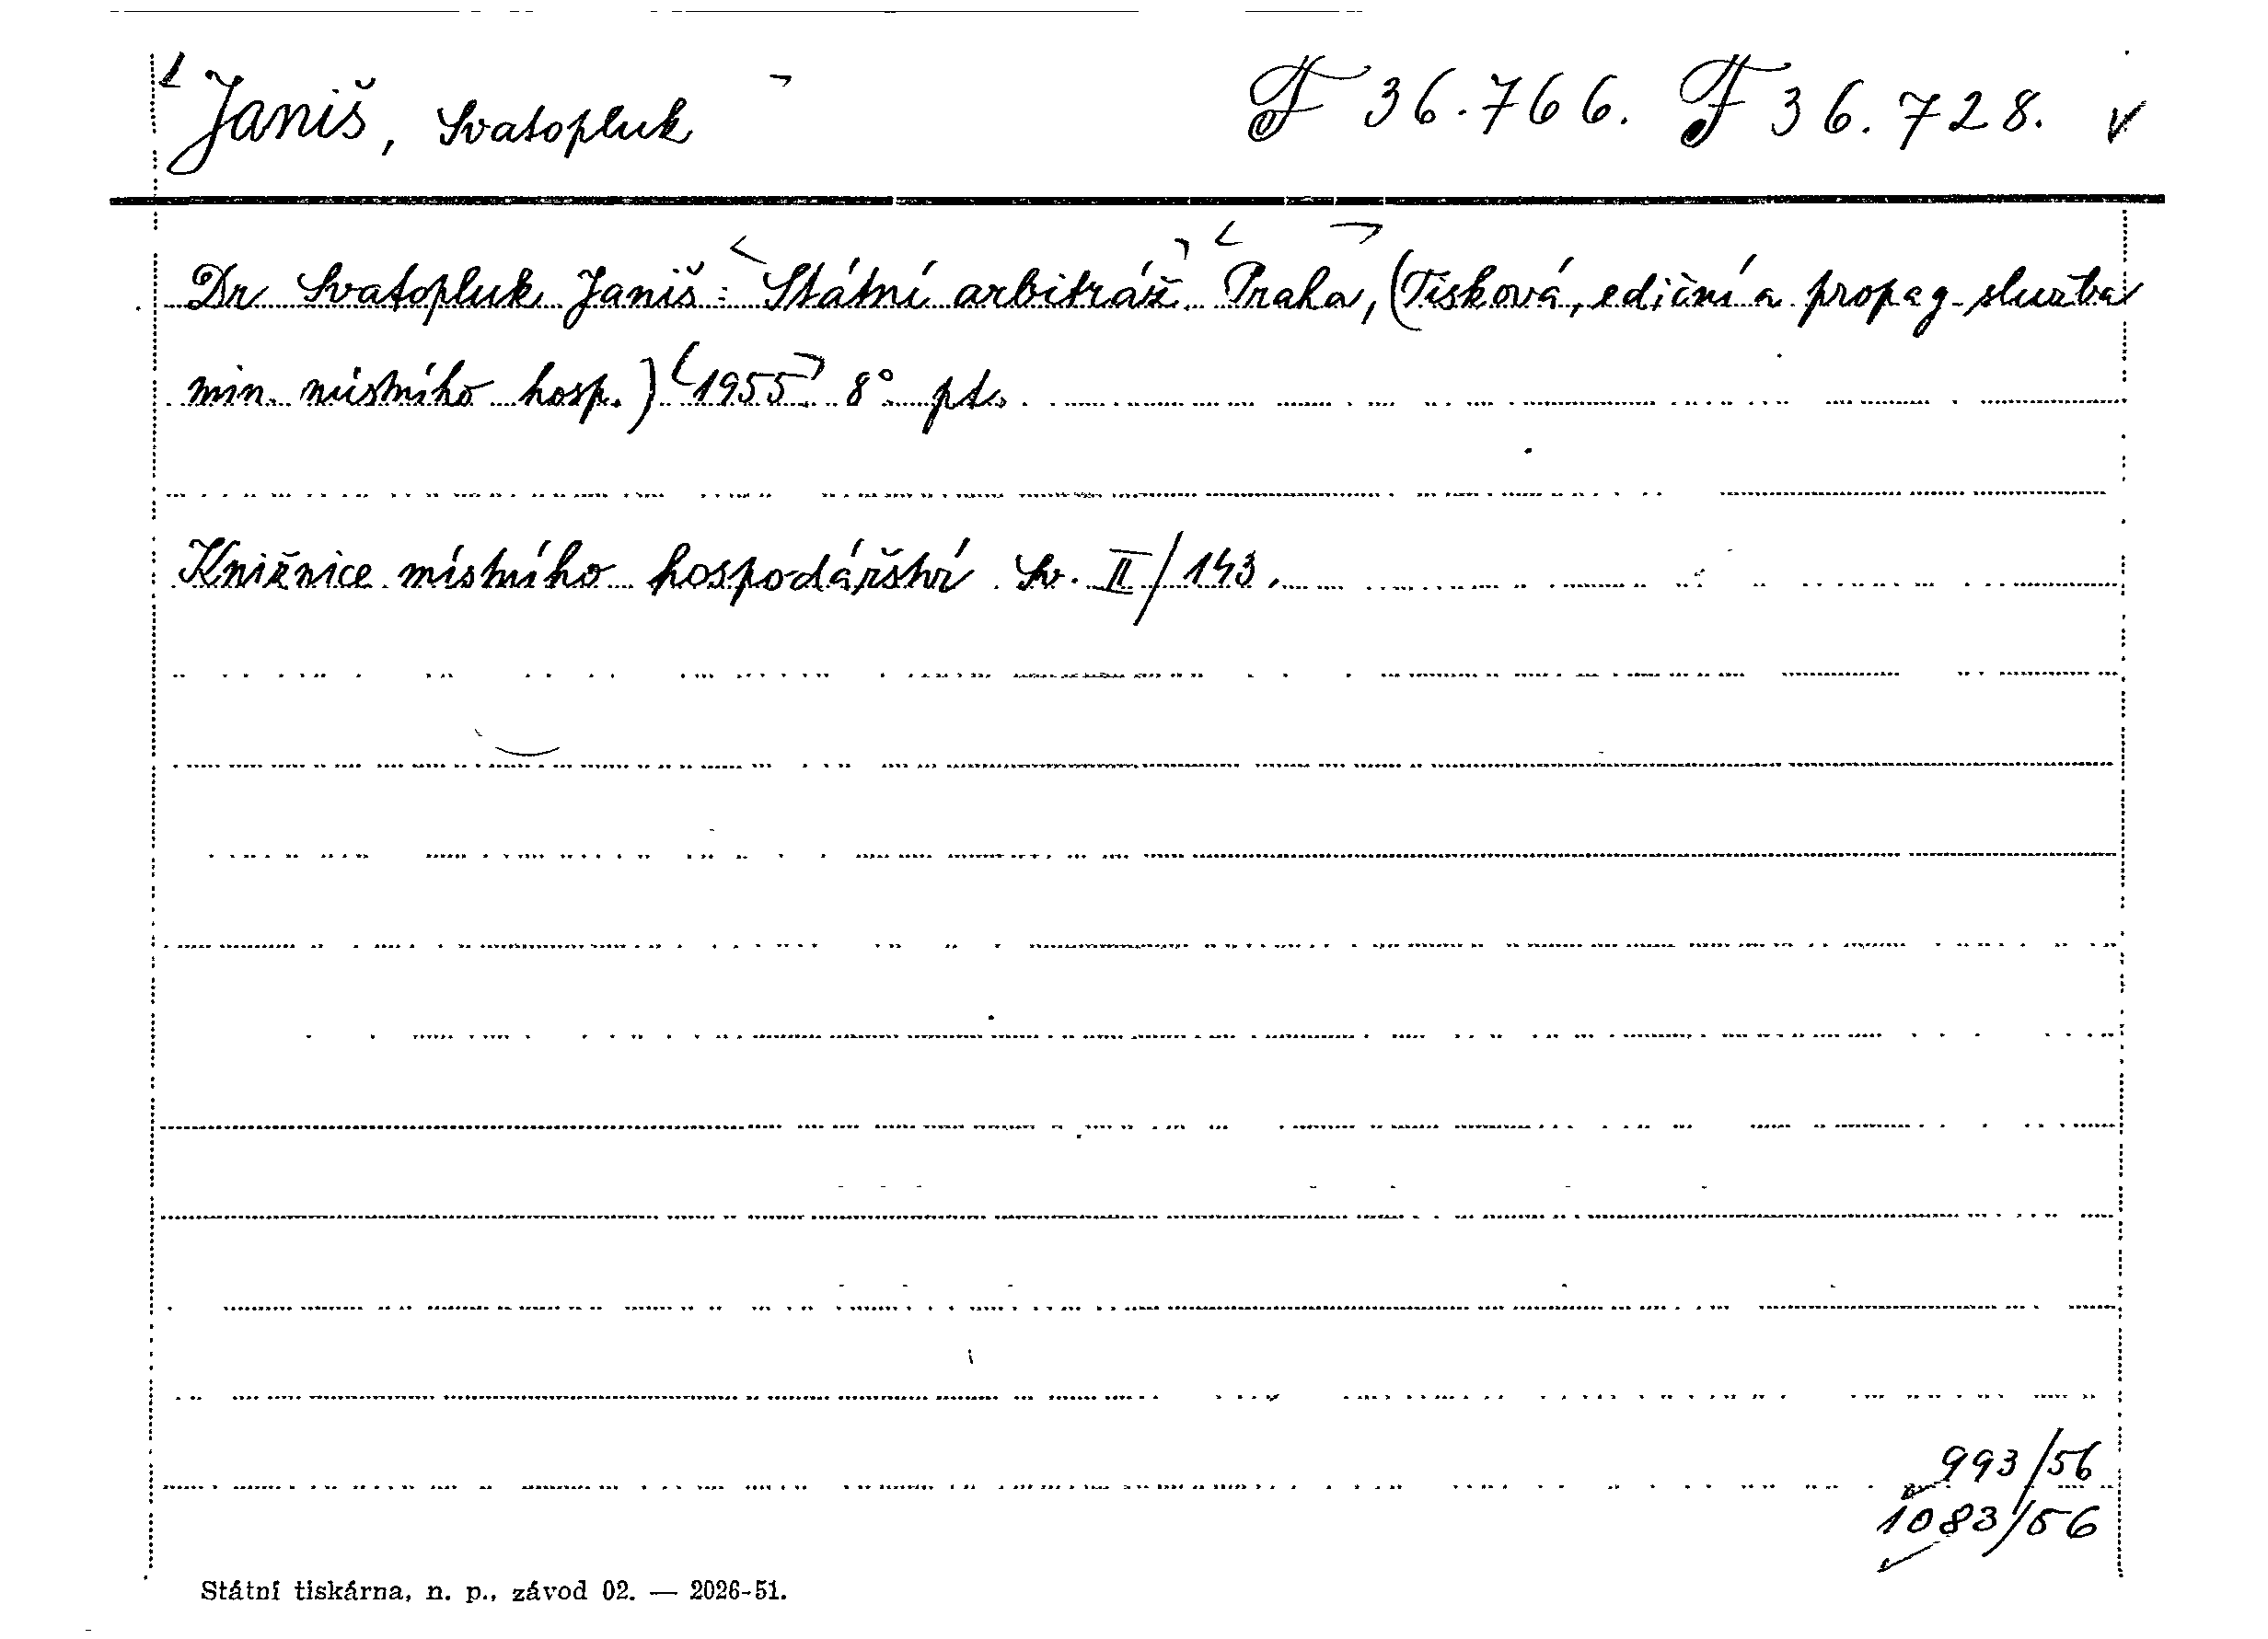 Janiš, Svatopluk F 36.766. F 36.728.
Dr Svatopluk Janiš: Státní arbitráž. Praha, (Tisková, ediční a propag. služba
min. místního hosp.) 1955. 8° pt.
Knižnice místního hospodářství. Sv. II/143.
993/56
1083/56
Státní tiskárna, n. p., závod 02. — 2026-51.